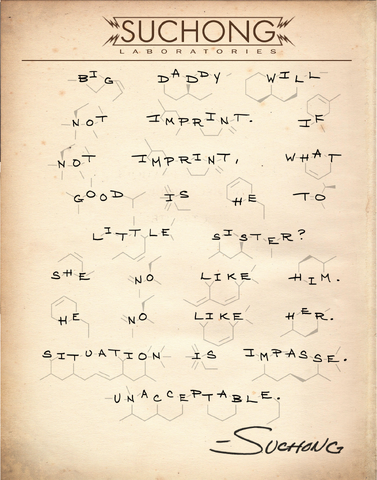 SUCHONG
LABORATORIES
BIG DADDY WILL
NOT IMPRINT. IF
NOT IMPRINT, WHAT
GOOD IS HE TO
LITTLE SISTER?
SHE NO LIKE HIM.
HE NO LIKE HER.
SITUATION IS IMPASSE.
UNACCEPTABLE.
-SUCHONG